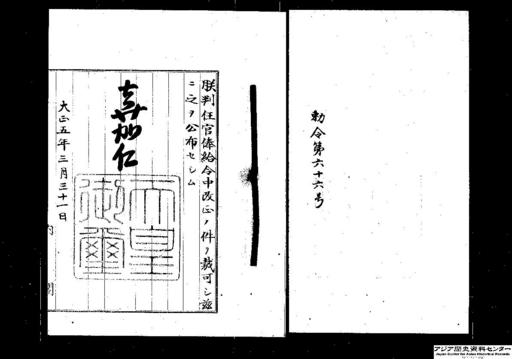 勅令第六十六号
朕判任官俸給令中改正ノ件ヲ裁可シ茲
ニ之ヲ公布セシム
嘉仁
天皇御璽
大正五年三月三十一日
内閣
アジア歴史資料センター
Japan Center for Asian Historical Records